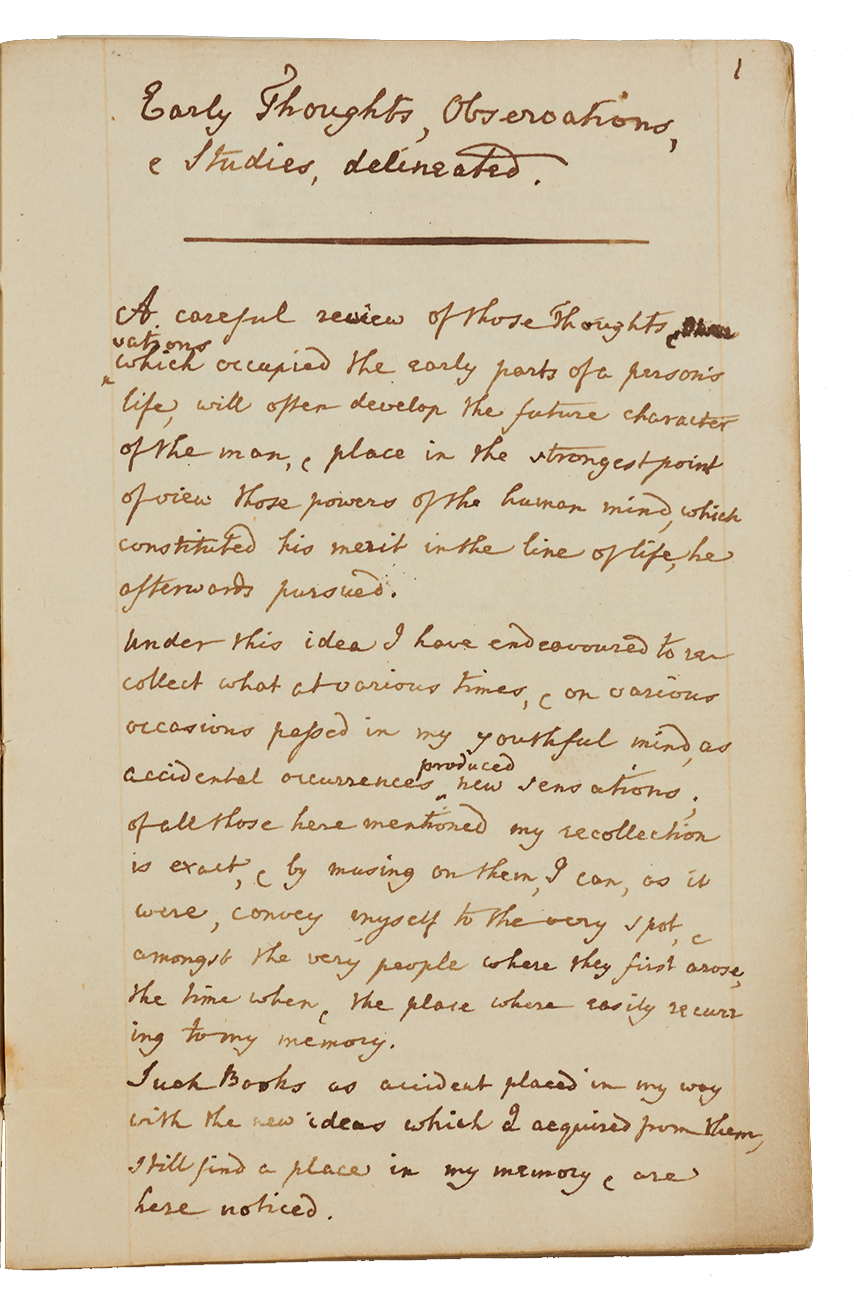 1
Early Thoughts, Observations,
& Studies, delineated.
A careful review of those Thoughts, & Obser
vations
which occupied the early parts of a person's
life, will often develop the future character
of the man, & place in the strongest point
of view those powers of the human mind, which
constituted his merit in the line of life, he
afterwards pursued.
Under this idea I have endeavoured to re-
collect what at various times, & on various
occasions passed in my youthful mind, as
produced
accidental occurrences new sensations;
of all those here mentioned my recollection
is exact, & by musing on them, I can, as it
were, convey myself to the very spot, &
amongst the very people where they first arose,
the time when, & the place where easily recurr
ing to my memory.
Such Books as accident placed in my way
with the new ideas which I acquired from them,
still find a place in my memory & are
here noticed.